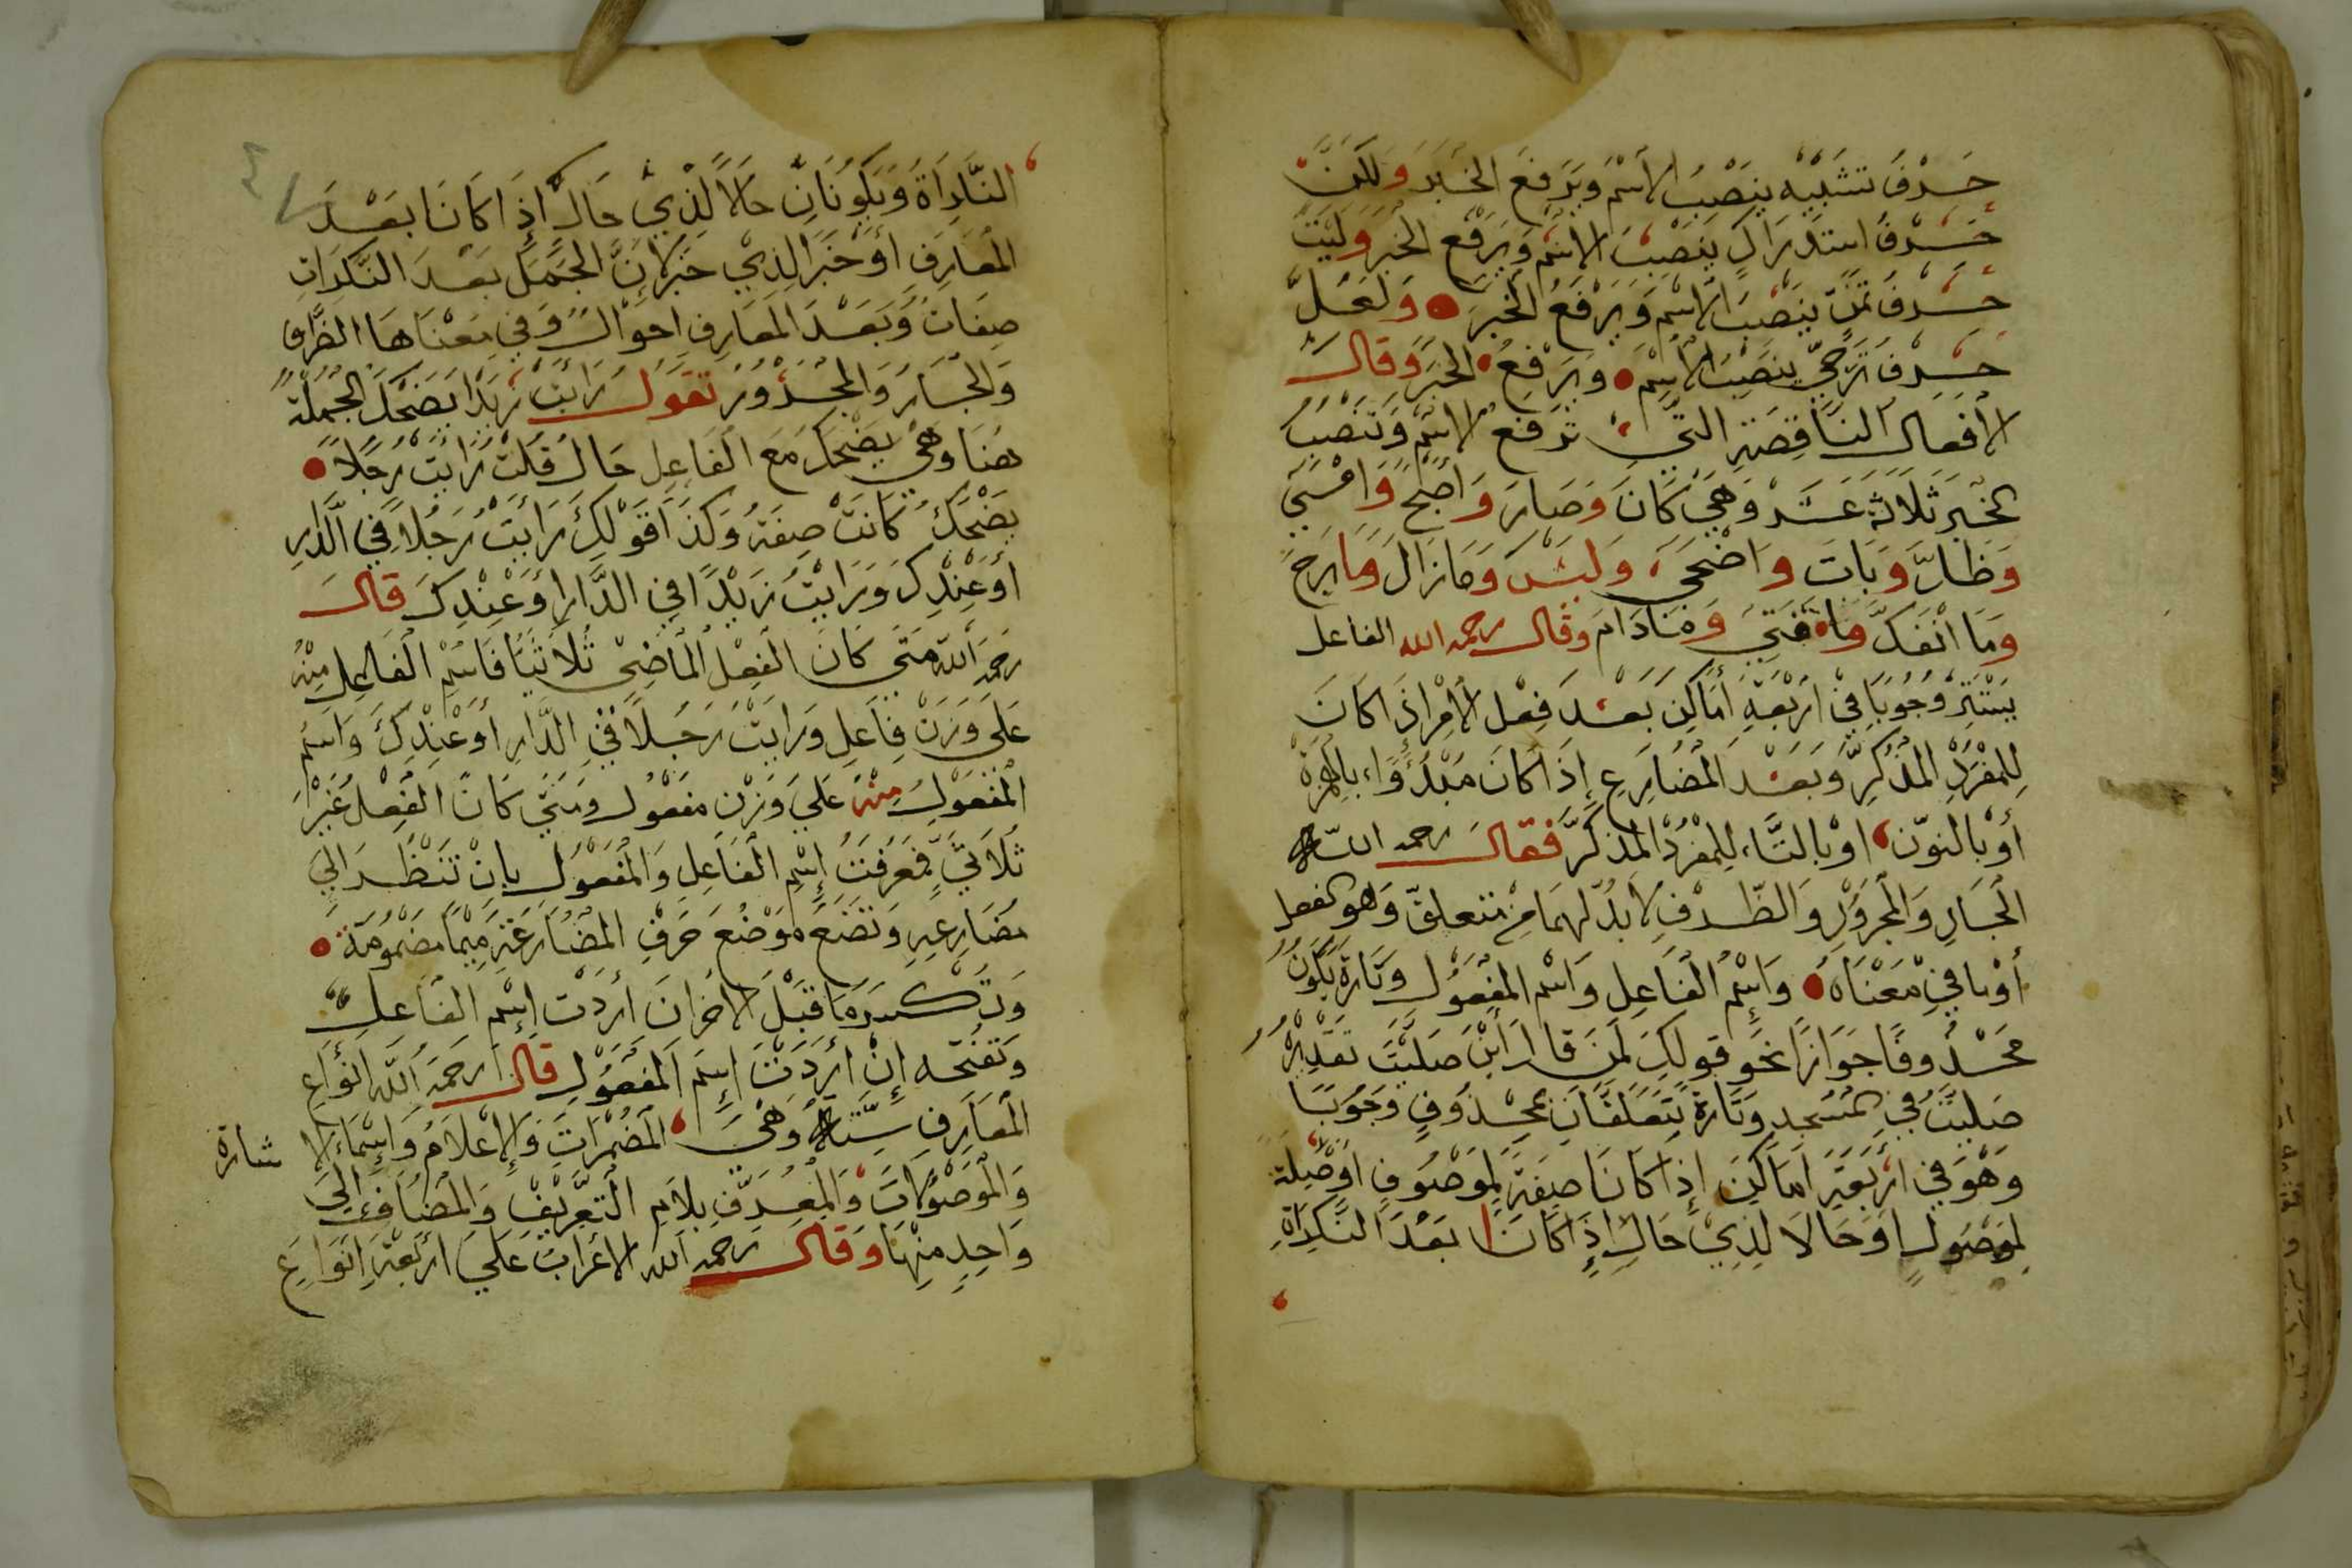 حرف تشبيه ينصب الاسم ويرفع الخبر ولكن
حرف استدراك ينصب الاسم ويرفع الخبر وليت
حرف تمن ينصب الاسم ويرفع الخبر ولعل
حرف ترجي ينصب الاسم ويرفع الخبر وقال
الافعال الناقصة التي ترفع الاسم وتنصب
الخبر ثلاثة عشر وهي كان وصار واصبح وامسي
وظل وبات واضحي وليس ومازال ومابرح
وما انفك ومافتي ومادام وقال رحمه الله الفاعل
يستتر وجوبا في اربعة أماكن بعد فعل الامر اذا كان
للمفرد المذكر وبعد المضارع إذا كان مبدؤا بالهمزة
أو بالنون او بالتاء للمفرد المذكر فقال رحمه الله
الجار والمجرور والظرف لا بد لهما من متعلق وهو الفعل
أو ما في معناه واسم الفاعل واسم المفعول وتارة يكون
محذوفا جوازا نحو قولك لمن قال أين صليت تقديره
صليت في المسجد وتارة يتعلقان بمحذوف وجوبا
وهو في أربعة اماكن إذا كانا صفة لموصوف اوصلة
لموصول او حالا لذي حال إذا كانا بعد النكراة
النكراة ويكونان حالا لذي حال إذا كانا بعد
المعارف أو خبر الذي خبر لان الجمل بعد النكرات
صفات وبعد المعارف احوال وفي معناها الظرف
والجار والمجرور تقول رايت زيدا يضحك الجملة
هنا وهي يضحك مع الفاعل حال قلت رايت رجلا
يضحك كانت صفة وكذا قولك رايت رجلا في الدار
أو عندك ورايت زيدا في الدار او عندك قال
رحمه الله متى كان الفعل الماضي ثلاثيا فاسم الفاعل منه
على وزن فاعل ورايت رجلا في الدار أو عندك واسم
المفعول منه علي وزن مفعول ومتي كان الفعل غير
ثلاثي فمعرفت إسم الفاعل والمفعول بان تنظر الي
مضارعه وتضع موضع حرف المضارعة ميما مضمومة
وتكسر ما قبل الاخران اردت إسم الفاعل
وتفتحه إن أردت إسم المفعول قال رحمه الله انواع
المعارف ستة وهي المضمرات والاعلام واسماء الا شارة
والموصولات والمعرف بلام التعريف والمضاف الي
واحد منها وقال رحمه الله الاعراب علي اربعة انواع